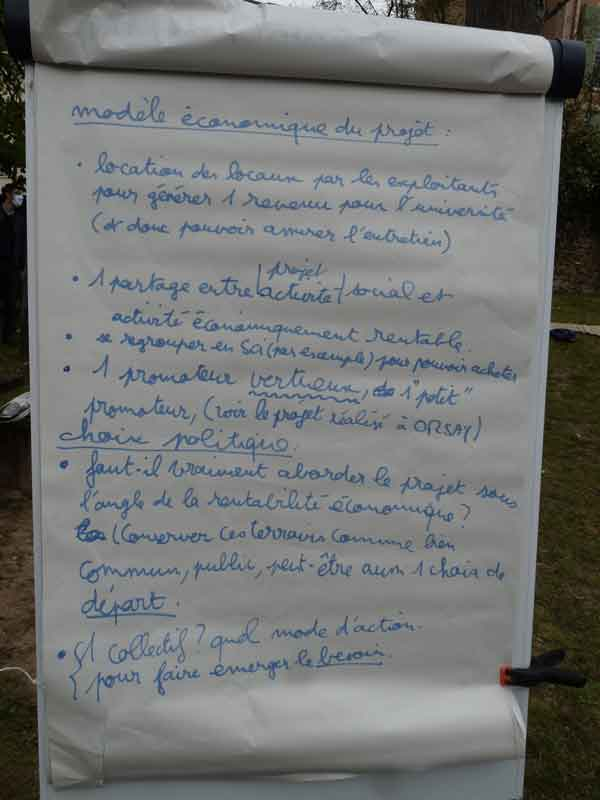 modèle économique du projet :
• location des locaux par les exploitants
pour générer 1 revenu pour l'université
(et donc pouvoir assurer l'entretien)
projet
• 1 partage entre activité social et
activité économiquement rentable.
• se regrouper en sci (par exemple) pour pouvoir acheter
• 1 promoteur vertueux, 1 "petit"
promoteur, (voir le projet réalisé à ORSAY)
choix politique.
• faut-il vraiment aborder le projet sous
l'angle de la rentabilité économique ?
(Conserver ces terrains comme bien
commun, public, peut-être aussi 1 choix de
départ.
• 1 collectif ? quel mode d'action.
pour faire émerger le besoin.